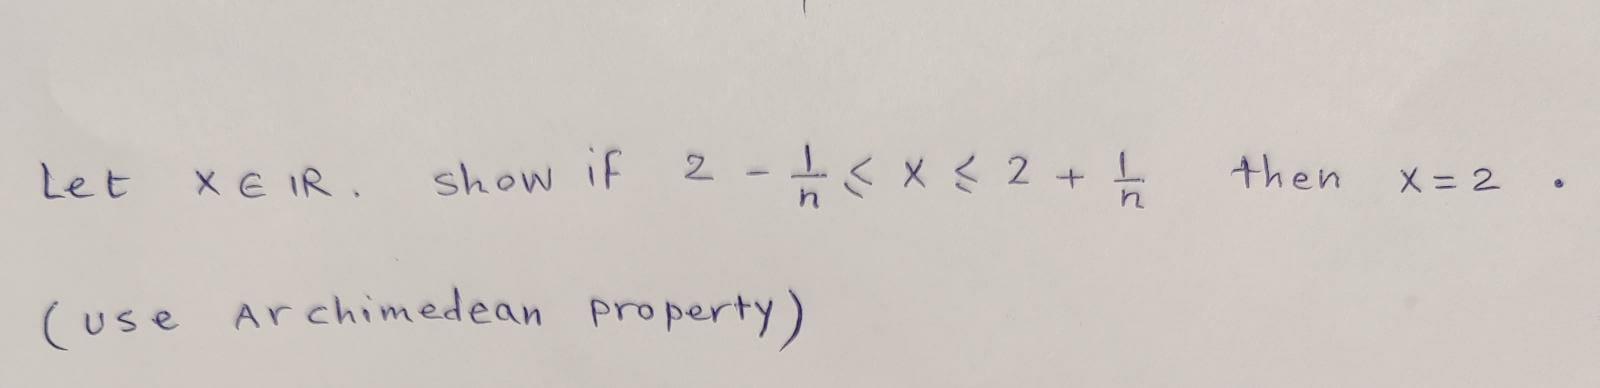 Let x ∈ ℝ. show if 2 - 1/n ≤ x ≤ 2 + 1/n then x = 2.
(use Archimedean property)